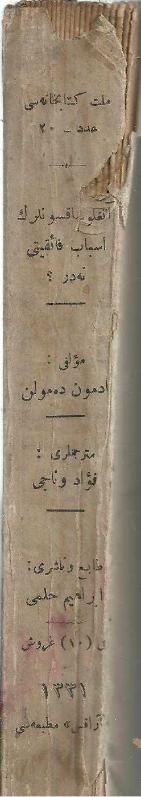 ملت كتابخانه‌سى
عدد - ٢٠
آنغلوساقسونلرك
اسباب فائقيتى
نه‌در ؟
مؤلفى :
ادمون ده‌مولن
مترجملرى :
فؤاد وناجى
طابع وناشرى :
ابراهيم حلمى
(١٠) غروش
١٣٣١
مطبعه‌سى